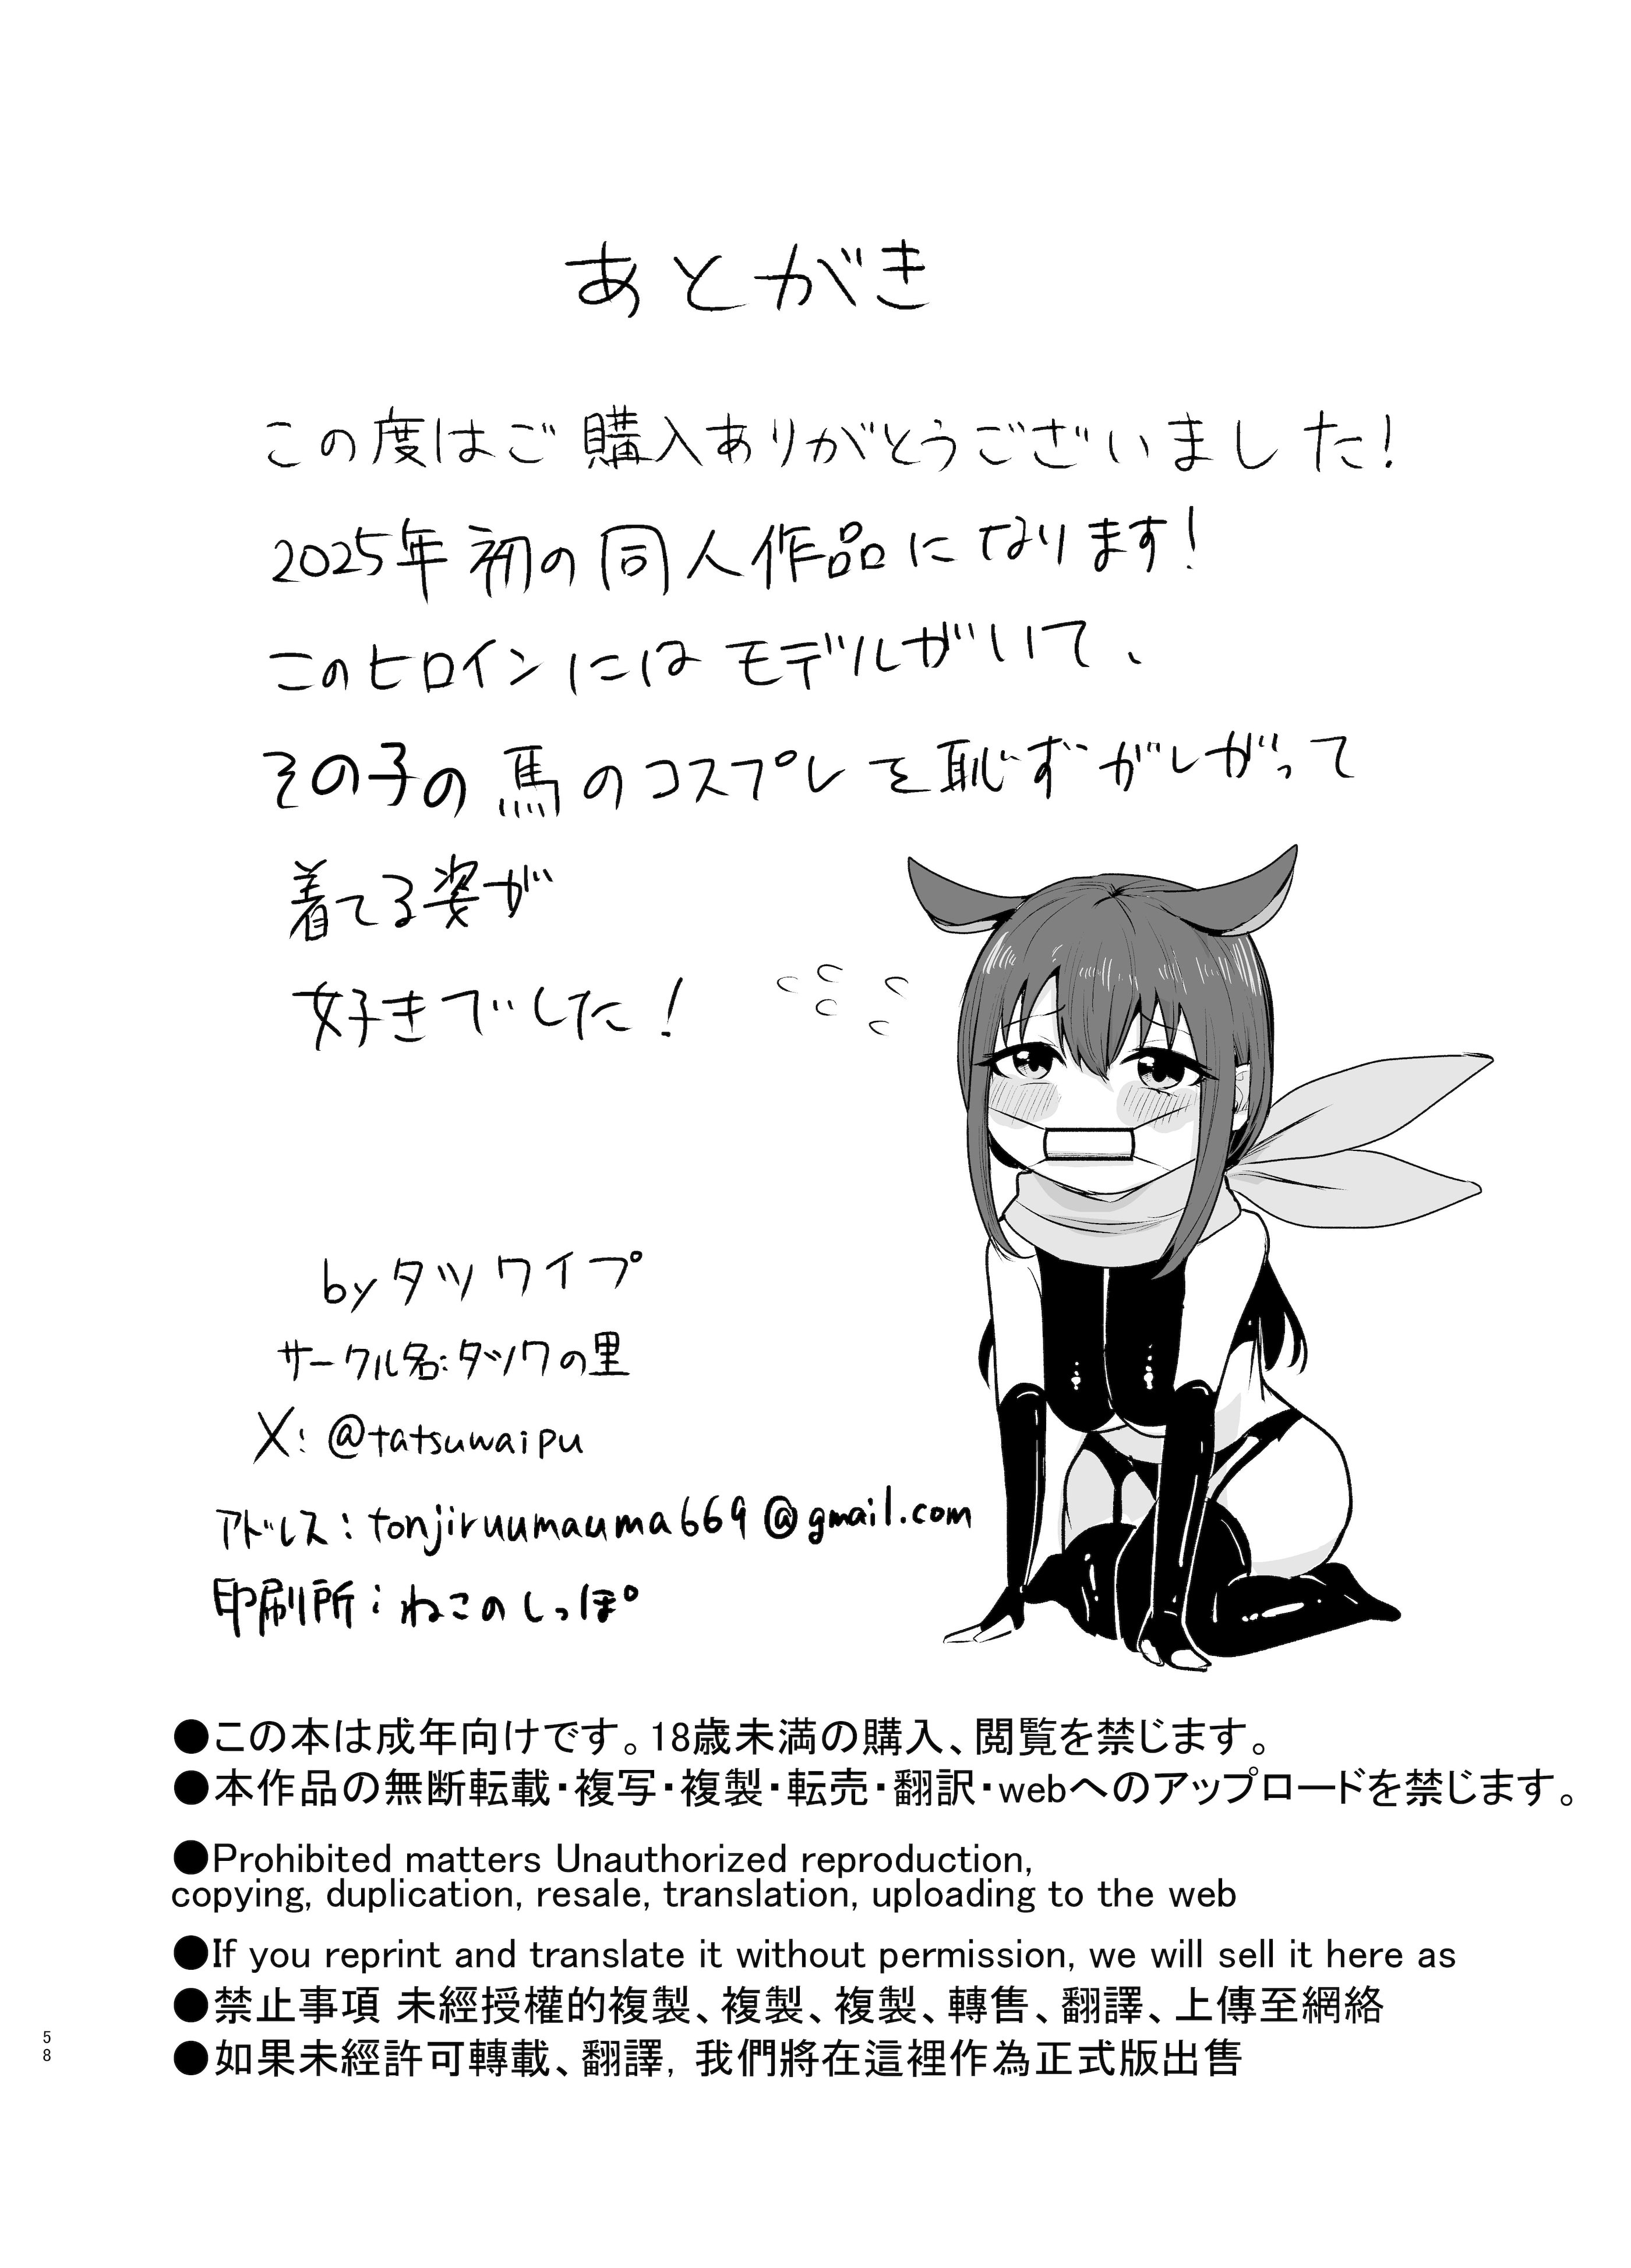 あとがき
この度はご購入ありがとうございました!
2025年初の同人作品になります!
このヒロインにはモデルがいて、
その子の馬のコスプレを恥ずがしがって
着てる姿が
好きでした!
byタツワイプ
サークル名:タツワの里
X:@tatsuwaipu
アドレス:tonjiruumauma669@gmail.com
印刷所:ねこのしっぽ
●この本は成年向けです。18歳未満の購入、閲覧を禁じます。
●本作品の無断転載・複写・複製・転売・翻訳・webへのアップロードを禁じます。
●Prohibited matters Unauthorized reproduction,
copying, duplication, resale, translation, uploading to the web
●If you reprint and translate it without permission, we will sell it here as
●禁止事項 未經授權的複製、複製、複製、轉售、翻譯、上傳至網絡
●如果未經許可轉載、翻譯, 我們將在這裡作為正式版出售
58